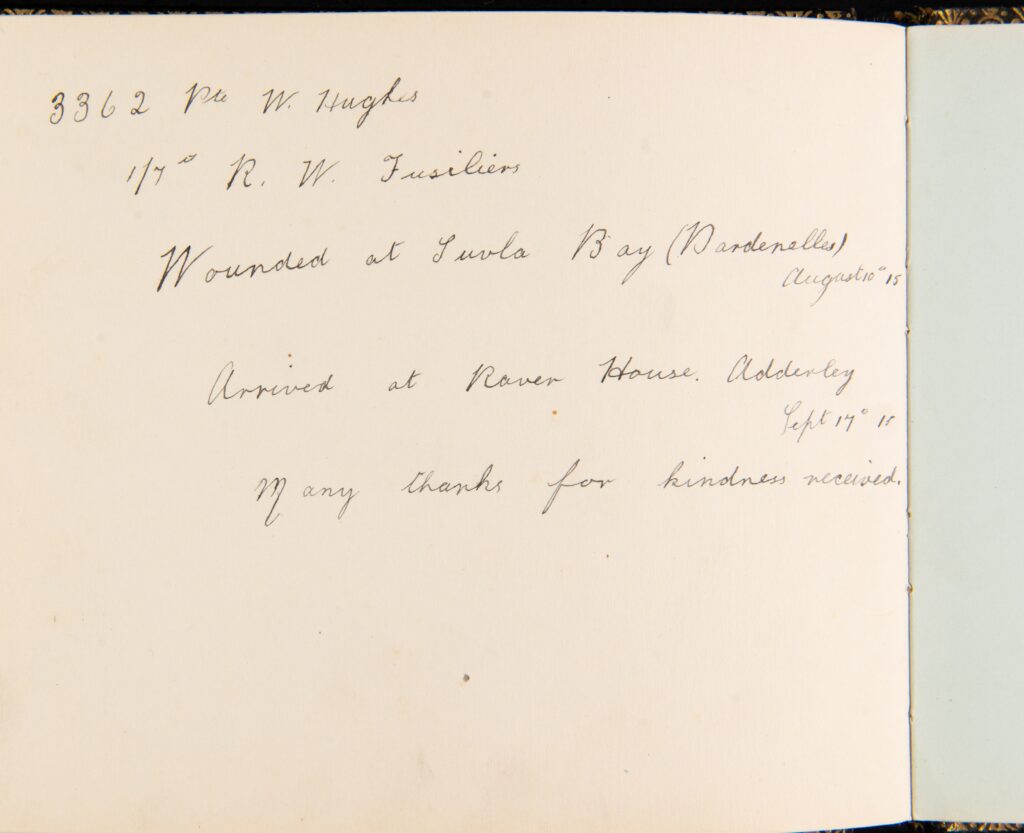 3362 Pte W. Hughes
1/7th R. W. Fusiliers
Wounded at Suvla Bay (Dardenelles)
August 10th 15
Arrived at Raven House. Adderley
Sept 17th 15
Many thanks for kindness received.